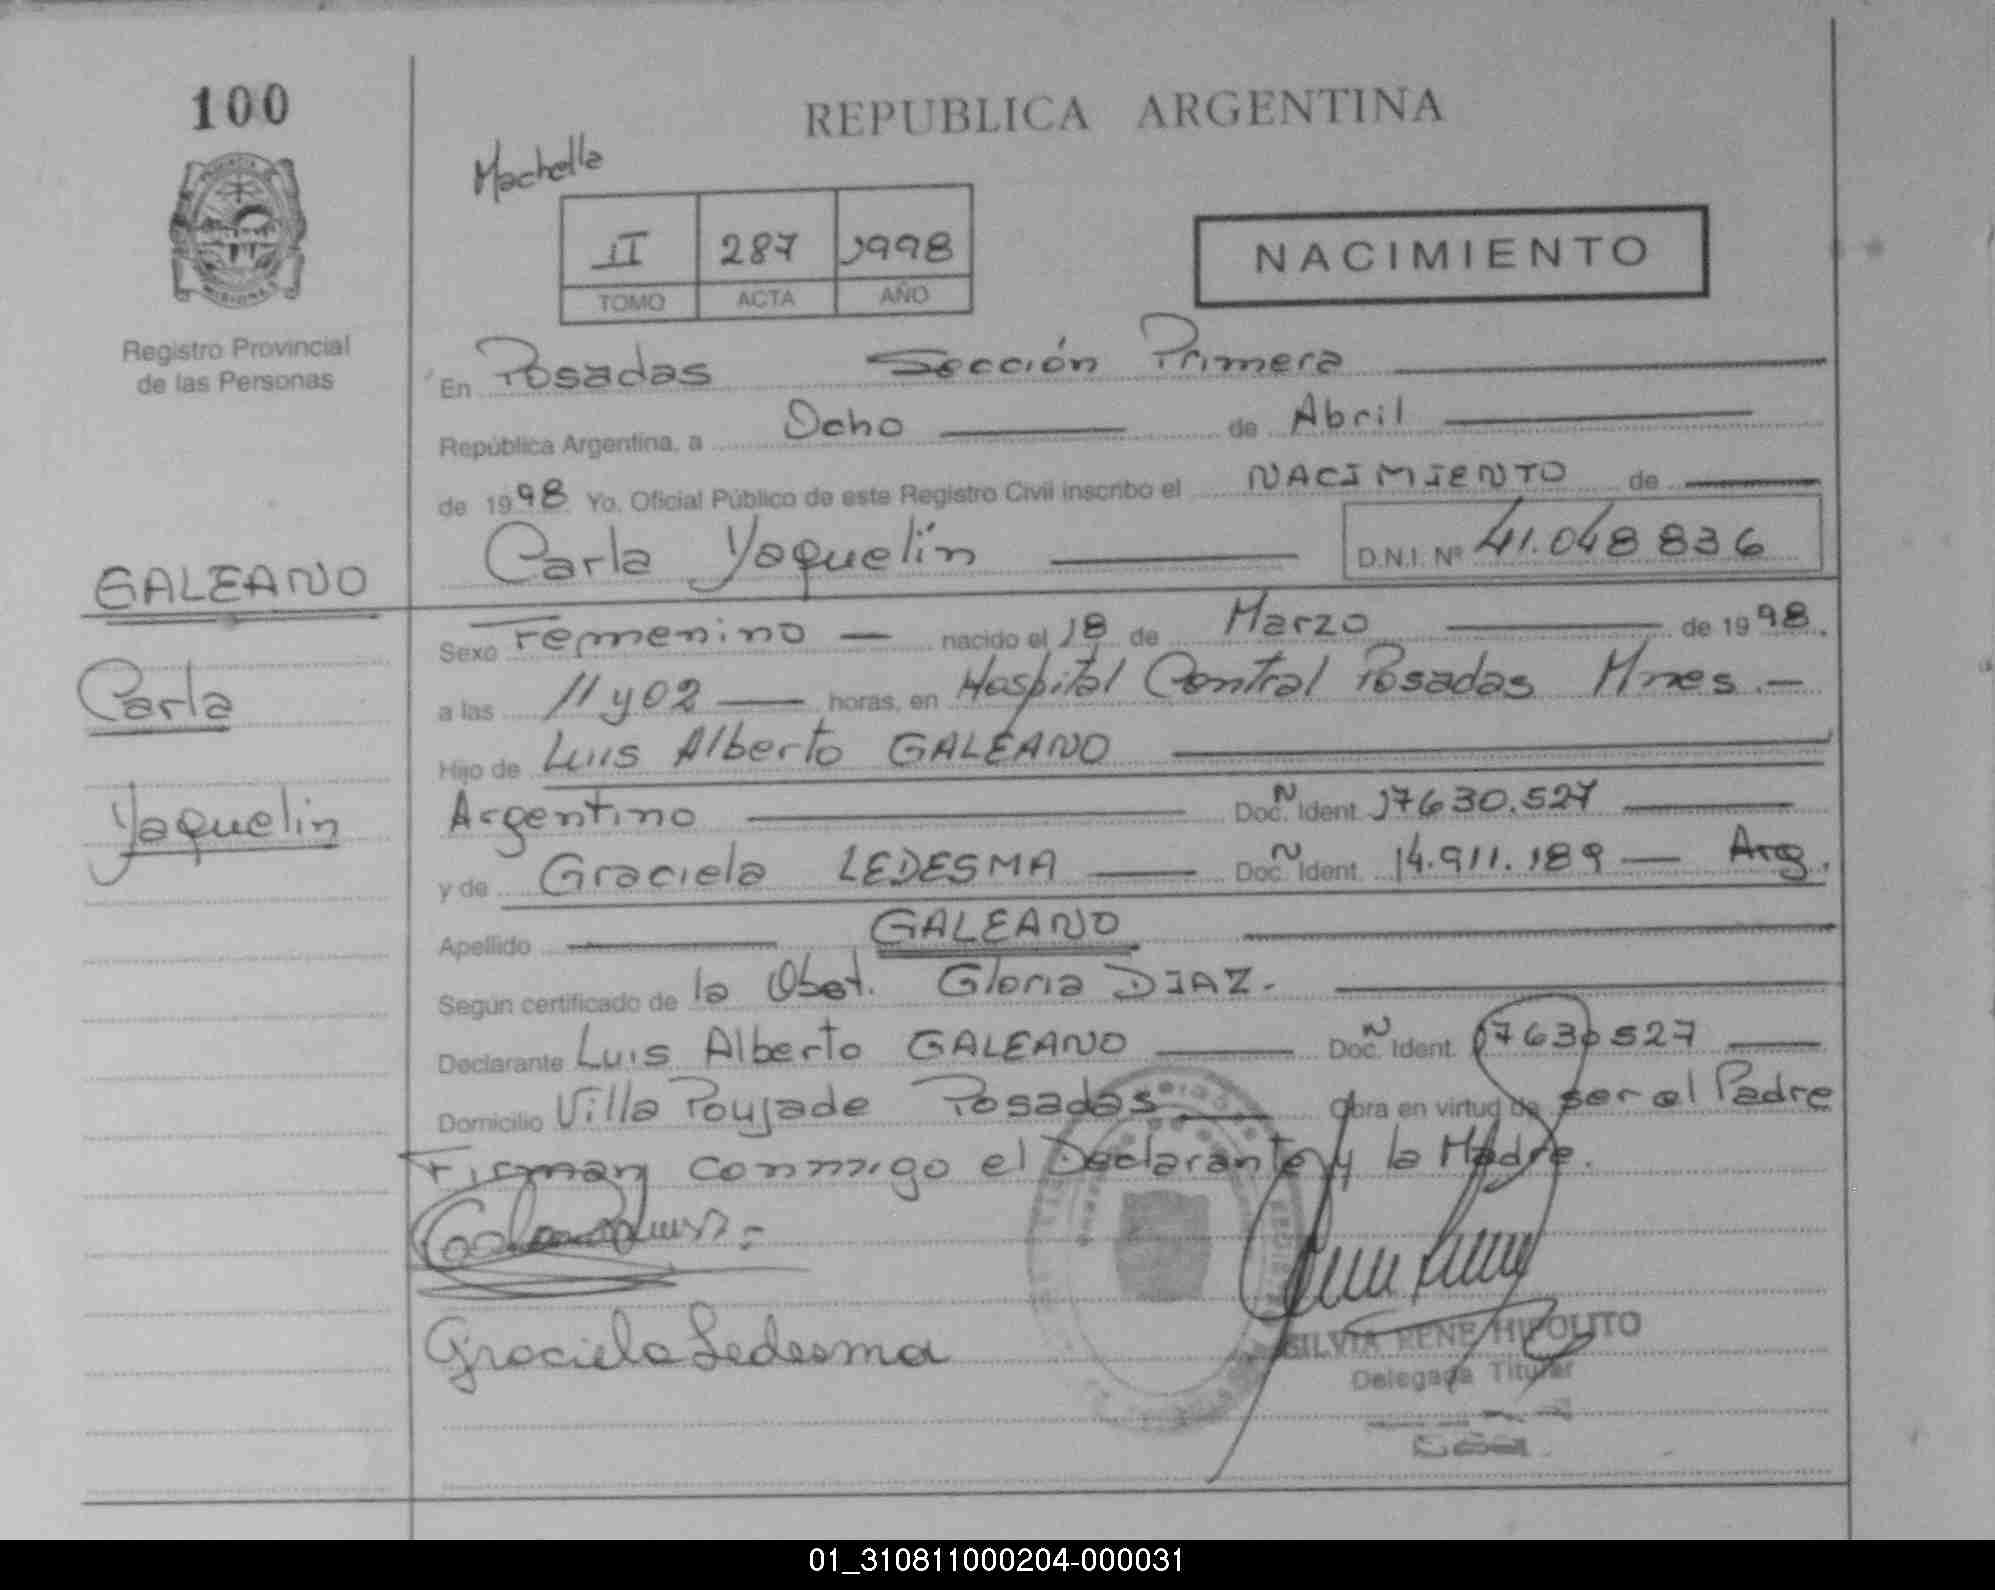 100
REPUBLICA ARGENTINA
Machella
II 287 1998
TOMO ACTA AÑO
NACIMIENTO
Registro Provincial
de las Personas
En Posadas Sección Primera
República Argentina, a Ocho de Abril
de 1998 Yo. Oficial Público de este Registro Civil inscribo el NACIMIENTO de
Carla Yaquelín D.N.I. Nº 41.048 836
GALEANO
Carla
Yaquelin
Sexo Femenino nacido el 18 de Marzo de 1998.
a las 11 y 02 horas, en Hospital Central Posadas Mnes.-
Hijo de Luis Alberto GALEANO
Argentino Doc. N Ident. 17630.527
y de Graciela LEDESMA Doc. N Ident. 14.911.189 Arg.
Apellido GALEANO
Según certificado de la Obst. Gloria DIAZ.
Declarante Luis Alberto GALEANO Doc. N Ident. 17630527
Domicilio Villa Poujade Posadas Obra en virtud de ser el Padre
Firman conmigo el Declarante y la Madre.
Graciela Ledesma
SILVIA RENE HIPOLITO
Delegada Titular
01_310811000204-000031